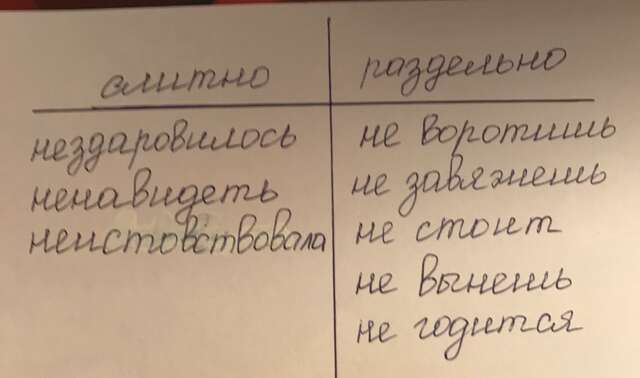 слитно
нездаровилось
ненавидеть
неистовствовала
раздельно
не воротишь
не завяжешь
не стоит
не вынешь
не годится